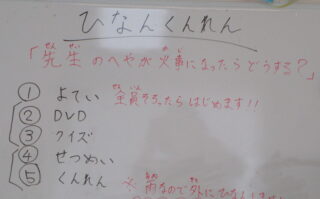 ひなんくんれん
「先生のへやが火事になったらどうする?」
① よてい 全員そろったらはじめます!!
② DVD
③ クイズ
④ せつめい
⑤ くんれん ※雨なので外にひなんしません